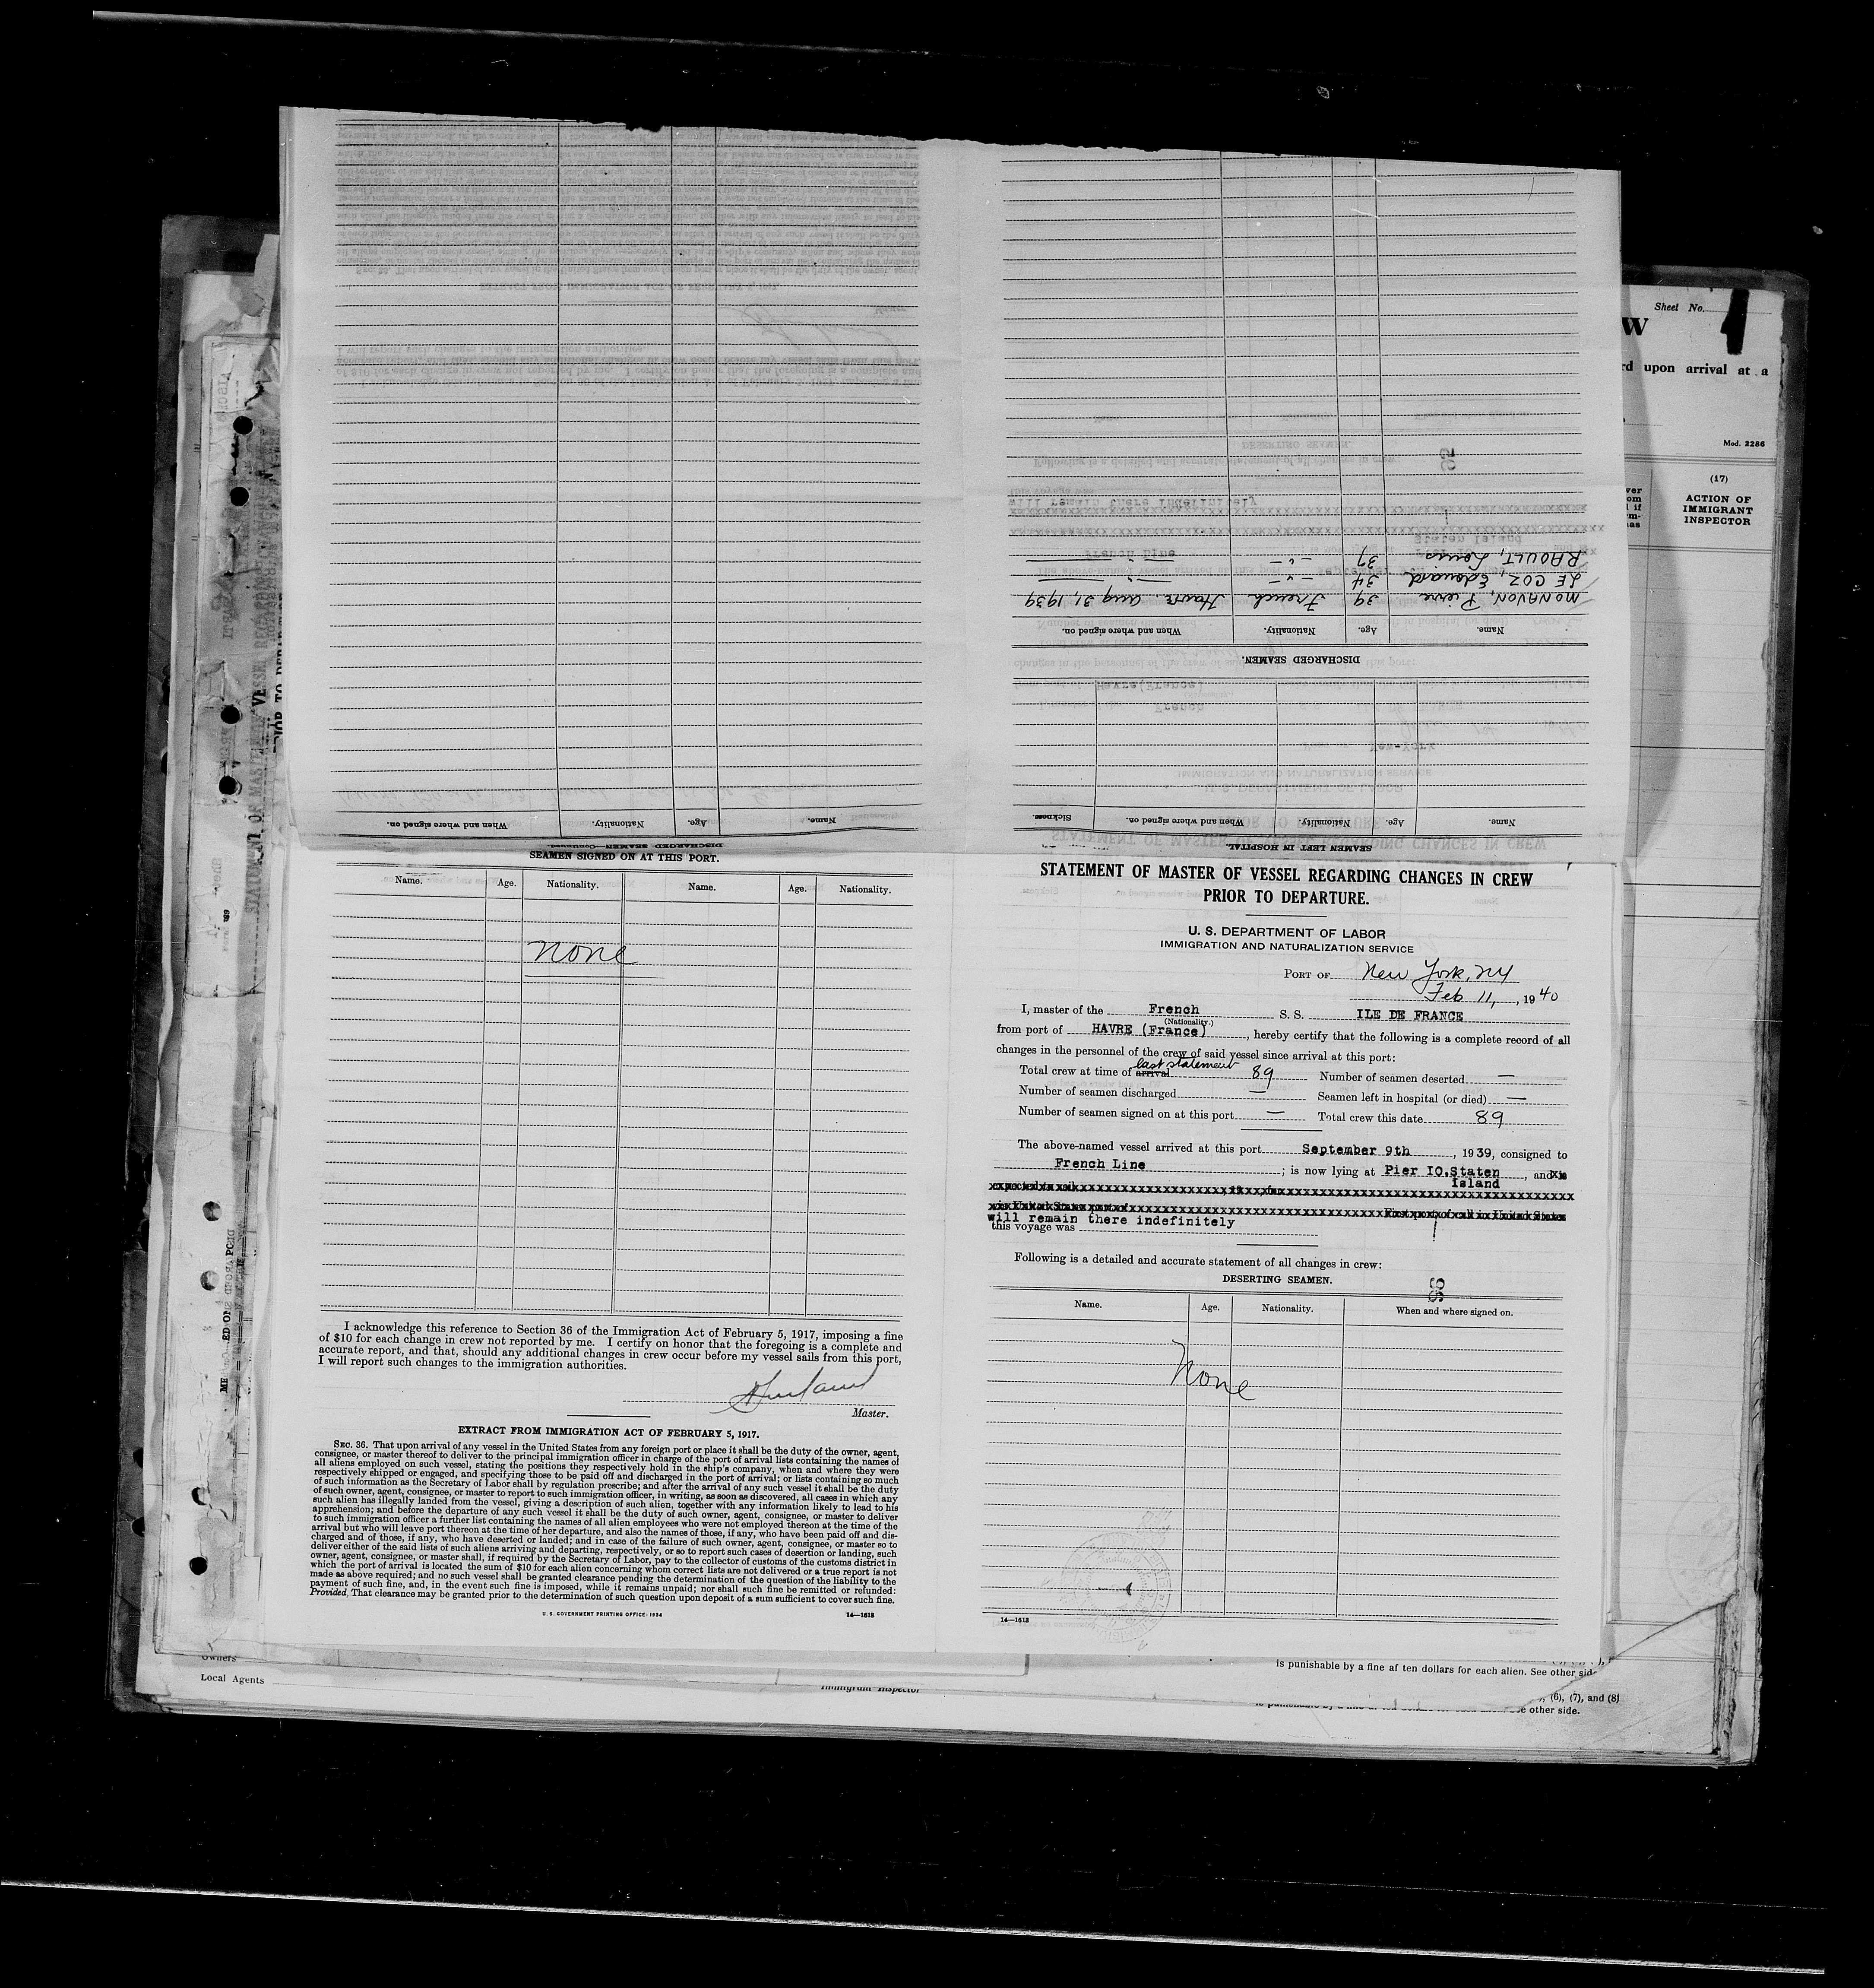 Sheet No.
W
rd upon arrival at a
Mod. 2286
(17)
ACTION OF
IMMIGRANT
INSPECTOR
SEAMEN LEFT IN HOSPITAL.
Name. Age. Nationality. When and where signed on. Sickness.
DISCHARGED SEAMEN.
Name. Age. Nationality. When and where signed on.
MONAVON, Pierre 39 French Havre. Aug 31, 1939
LE COZ, Edouard 34 -"- -"-
RAOULT, Louis 37 -"- -"-
DISCHARGED SEAMEN—Continued.
Name. Age. Nationality. When and where signed on.
SEAMEN SIGNED ON AT THIS PORT.
Name. Age. Nationality. Name. Age. Nationality.
None
I acknowledge this reference to Section 36 of the Immigration Act of February 5, 1917, imposing a fine
of $10 for each change in crew not reported by me. I certify on honor that the foregoing is a complete and
accurate report, and that, should any additional changes in crew occur before my vessel sails from this port,
I will report such changes to the immigration authorities.
Master.
EXTRACT FROM IMMIGRATION ACT OF FEBRUARY 5, 1917.
SEC. 36. That upon arrival of any vessel in the United States from any foreign port or place it shall be the duty of the owner, agent,
consignee, or master thereof to deliver to the principal immigration officer in charge of the port of arrival lists containing the names of
all aliens employed on such vessel, stating the positions they respectively hold in the ship's company, when and where they were
respectively shipped or engaged, and specifying those to be paid off and discharged in the port of arrival; or lists containing so much
of such information as the Secretary of Labor shall by regulation prescribe; and after the arrival of any such vessel it shall be the duty
of such owner, agent, consignee, or master to report to such immigration officer, in writing, as soon as discovered, all cases in which any
such alien has illegally landed from the vessel, giving a description of such alien, together with any information likely to lead to his
apprehension; and before the departure of any such vessel it shall be the duty of such owner, agent, consignee, or master to deliver
to such immigration officer a further list containing the names of all alien employees who were not employed thereon at the time of the
arrival but who will leave port thereon at the time of her departure, and also the names of those, if any, who have been paid off and dis-
charged and of those, if any, who have deserted or landed; and in case of the failure of such owner, agent, consignee, or master so to
deliver either of the said lists of such aliens arriving and departing, respectively, or so to report such cases of desertion or landing, such
owner, agent, consignee, or master shall, if required by the Secretary of Labor, pay to the collector of customs of the customs district in
which the port of arrival is located the sum of $10 for each alien concerning whom correct lists are not delivered or a true report is not
made as above required; and no such vessel shall be granted clearance pending the determination of the question of the liability to the
payment of such fine, and, in the event such fine is imposed, while it remains unpaid; nor shall such fine be remitted or refunded:
Provided, That clearance may be granted prior to the determination of such question upon deposit of a sum sufficient to cover such fine.
U. S. GOVERNMENT PRINTING OFFICE: 1934 14—1613
STATEMENT OF MASTER OF VESSEL REGARDING CHANGES IN CREW
PRIOR TO DEPARTURE.
U. S. DEPARTMENT OF LABOR
IMMIGRATION AND NATURALIZATION SERVICE
PORT OF New York, NY
Feb 11, , 1940
I, master of the French S. S. ILE DE FRANCE
(Nationality.)
from port of HAVRE (France) , hereby certify that the following is a complete record of all
changes in the personnel of the crew of said vessel since arrival at this port:
last statement
Total crew at time of arrival 89 Number of seamen deserted —
Number of seamen discharged — Seamen left in hospital (or died) —
Number of seamen signed on at this port — Total crew this date 89
The above-named vessel arrived at this port September 9th , 1939, consigned to
French Line ; is now lying at Pier IO.Staten , and is
Island
will remain there indefinitely
this voyage was
Following is a detailed and accurate statement of all changes in crew:
DESERTING SEAMEN.
Name. Age. Nationality. When and where signed on.
None
14—1613
Owners
Local Agents
Immigrant Inspector
is punishable by a fine af ten dollars for each alien. See other side
(6), (7), and (8)
e other side.